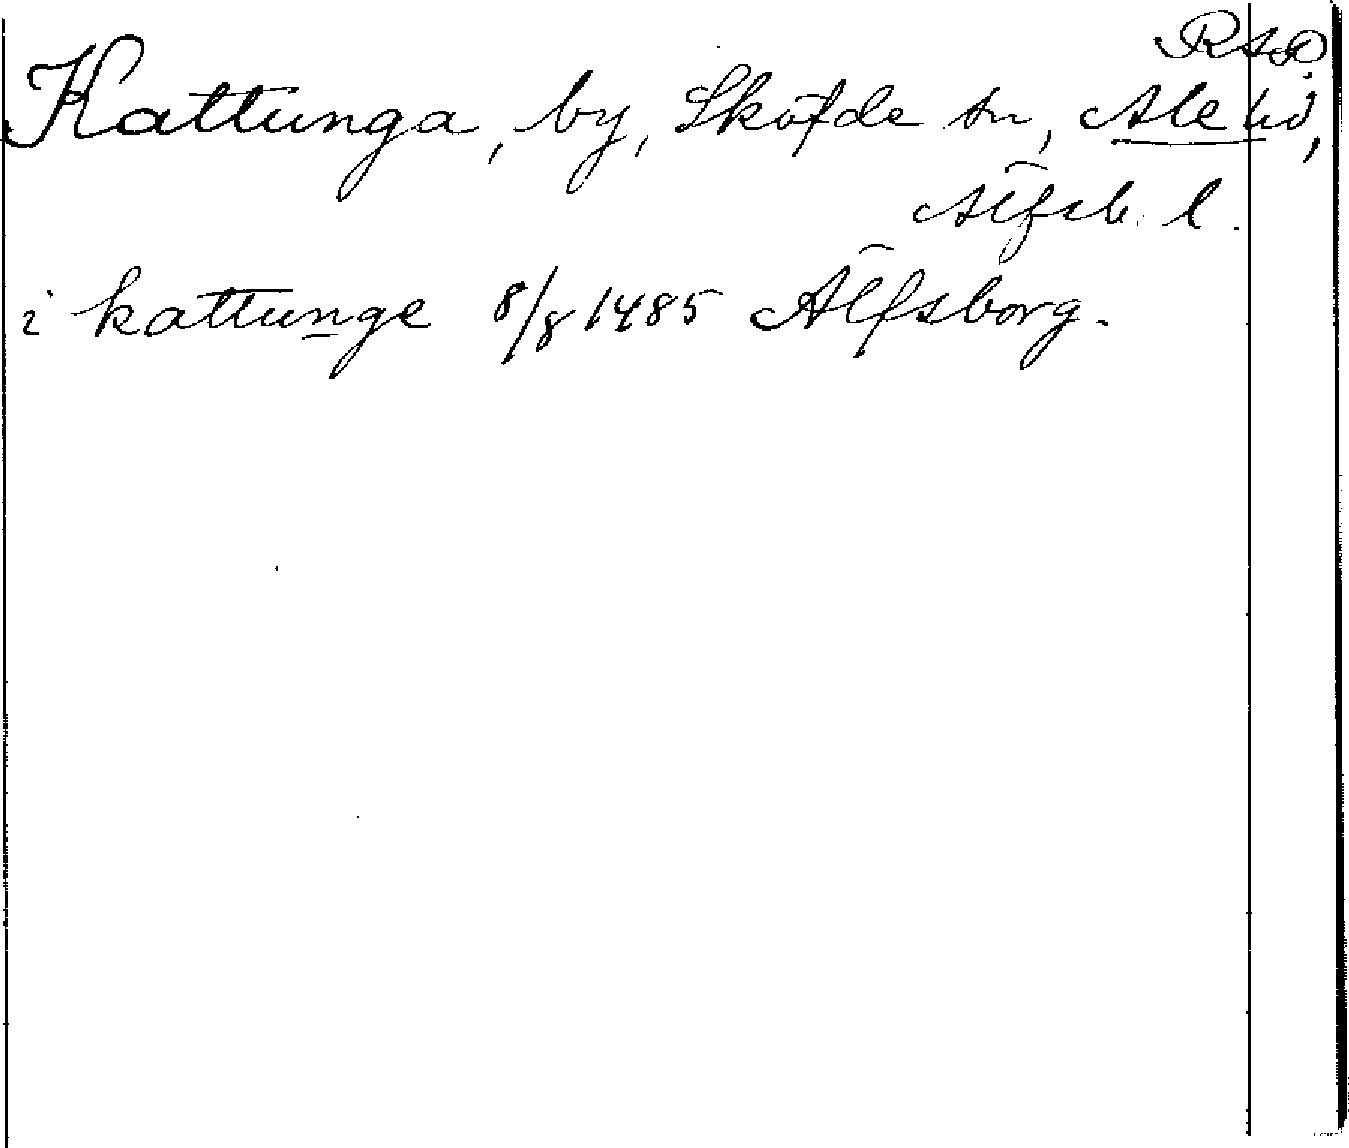 RAP.
Kattunga, by, Sköfde sn, Ale hd,
Älfsb. l.
i kattunge 8/8 1485 Älfsborg.